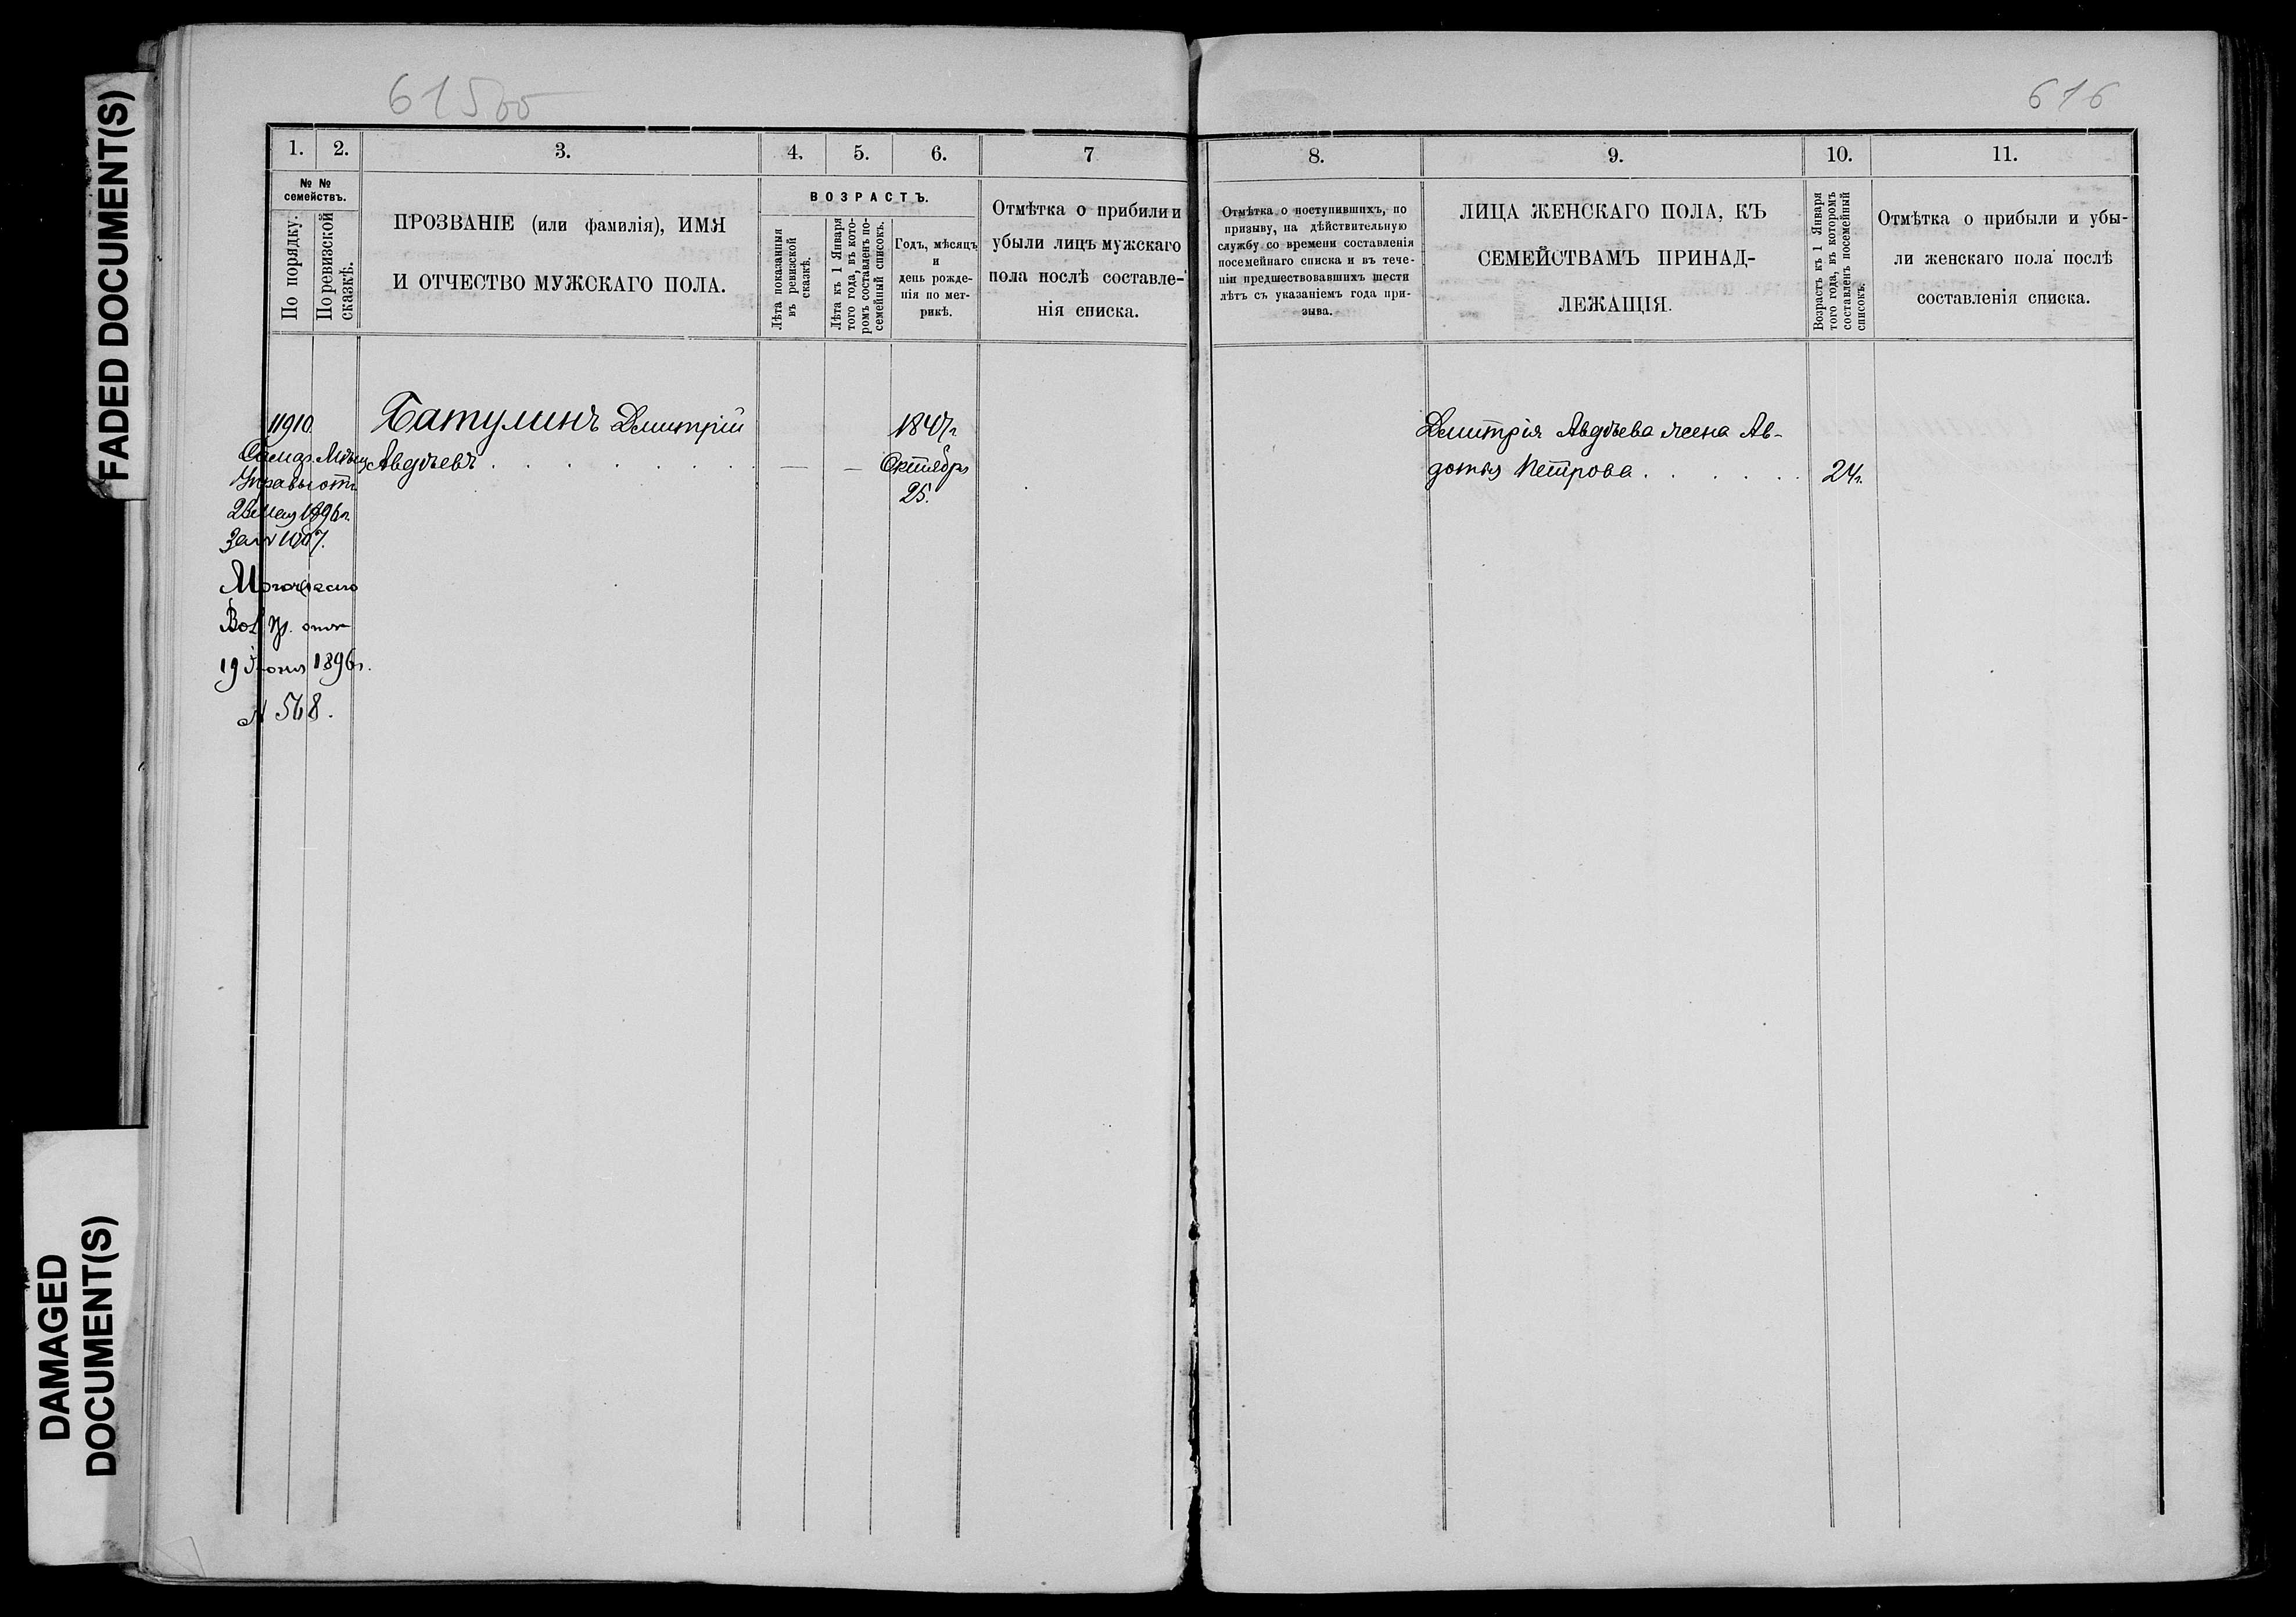 FADED DOCUMENT(S)
DAMAGED
DOCUMENT(S)
615об
1.
2.
3.
4.
5.
6.
7
№ №
семействъ.
По порядку.
По ревизской
сказкѣ.
ПРОЗВАНІЕ (или фамилія), ИМЯ
И ОТЧЕСТВО МУЖСКАГО ПОЛА.
ВОЗРАСТЪ.
Лѣта показанныя
въ ревизской
сказкѣ.
Лѣта къ 1 Января
того года, въ кото-
ромъ составленъ по-
семейный списокъ.
Годъ, мѣсяцъ
и
день рожде-
нія по мет-
рикѣ.
Отмѣтка о прибыли и
убыли лицъ мужскаго
пола послѣ составле-
нія списка.
11910.
Самар. Мѣщ.
Управы отъ
28 Мая 1896 г.
за № 1907.
Вол. Пр. отъ
19 Іюня 1896 г.
№ 568.
Батулинъ Дмитрій
Авдѣевъ . . . . . . . .
— —
1847 г.
Октября
25.
616
8.
9.
10.
11.
Отмѣтка о поступившихъ, по
призыву, на дѣйствительную
службу со времени составленія
посемейнаго списка и въ тече-
ніи предшествовавшихъ шести
лѣтъ съ указаніемъ года при-
зыва.
ЛИЦА ЖЕНСКАГО ПОЛА, КЪ
СЕМЕЙСТВАМЪ ПРИНАД-
ЛЕЖАЩІЯ.
Возрастъ къ 1 Января
того года, въ которомъ
составленъ посемейный
списокъ.
Отмѣтка о прибыли и убы-
ли женскаго пола послѣ
составленія списка.
Дмитрія Авдѣева жена Ав-
дотья Петрова . . . . . .
24 г.